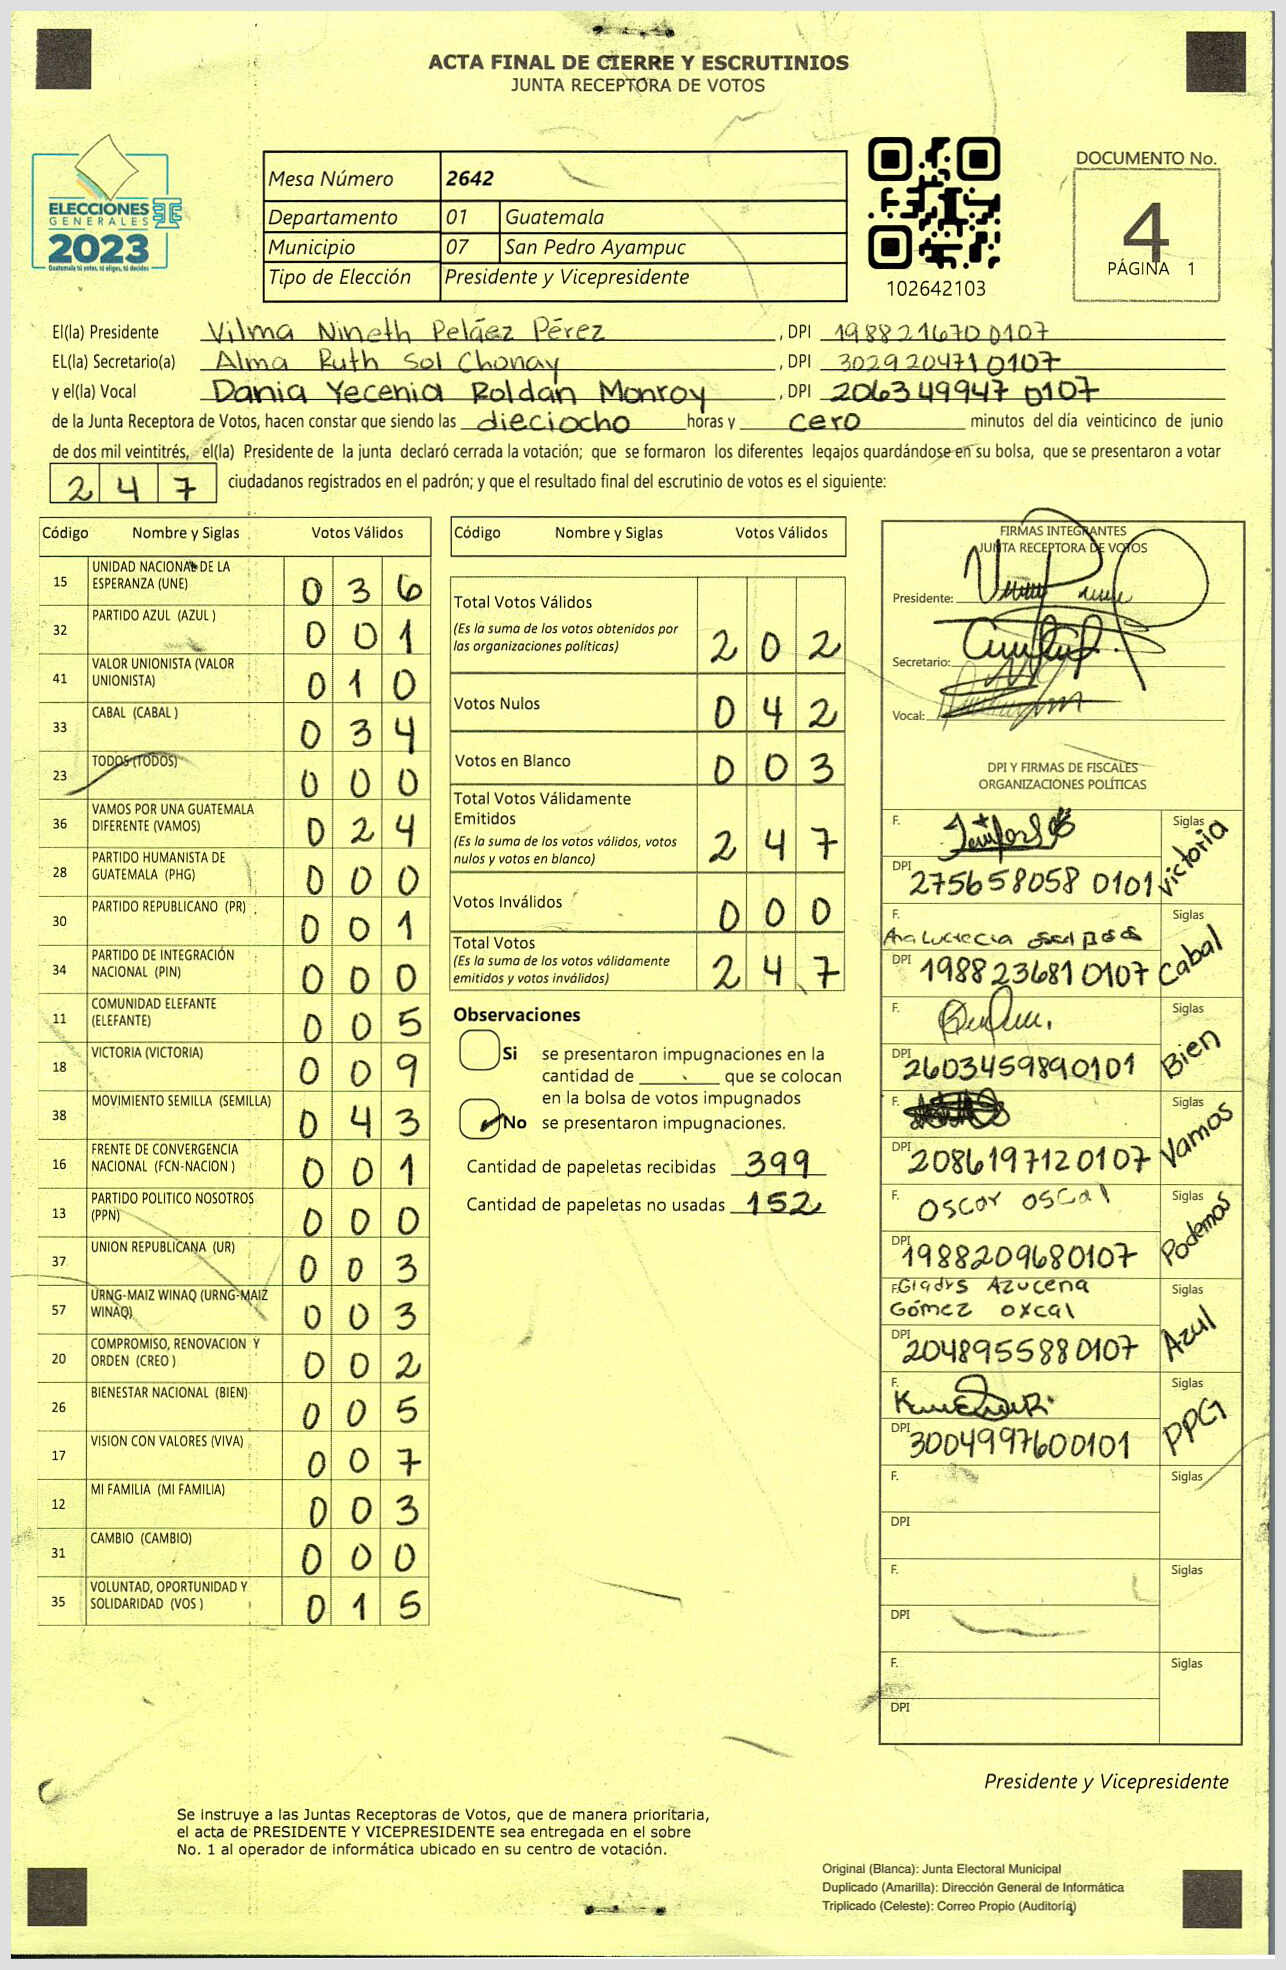 ACTA FINAL DE CIERRE Y ESCRUTINIOS
JUNTA RECEPTORA DE VOTOS
ELECCIONES
GENERALES
2023
Guatemala tú votas, tú eliges, tú decides
Mesa Número 2642
Departamento 01 Guatemala
Municipio 07 San Pedro Ayampuc
Tipo de Elección Presidente y Vicepresidente
102642103
DOCUMENTO No.
4
PÁGINA 1
El(la) Presidente Vilma Nineth Peláez Pérez, DPI 198821670 0107
EL(la) Secretario(a) Alma Ruth Sol Chonay, DPI 302920471 0107
y el(la) Vocal Dania Yecenia Roldán Monroy, DPI 206349947 0107
de la Junta Receptora de Votos, hacen constar que siendo las dieciocho horas y cero minutos del día veinticinco de junio
de dos mil veintitrés, el(la) Presidente de la junta declaró cerrada la votación; que se formaron los diferentes legajos guardándose en su bolsa, que se presentaron a votar
247 ciudadanos registrados en el padrón; y que el resultado final del escrutinio de votos es el siguiente:
Código Nombre y Siglas Votos Válidos
15 UNIDAD NACIONAL DE LA ESPERANZA (UNE) 036
32 PARTIDO AZUL (AZUL ) 001
41 VALOR UNIONISTA (VALOR UNIONISTA) 010
33 CABAL (CABAL ) 034
23 TODOS (TODOS) 000
36 VAMOS POR UNA GUATEMALA DIFERENTE (VAMOS) 024
28 PARTIDO HUMANISTA DE GUATEMALA (PHG) 000
30 PARTIDO REPUBLICANO (PR) 001
34 PARTIDO DE INTEGRACIÓN NACIONAL (PIN) 000
11 COMUNIDAD ELEFANTE (ELEFANTE) 005
18 VICTORIA (VICTORIA) 009
38 MOVIMIENTO SEMILLA (SEMILLA) 043
16 FRENTE DE CONVERGENCIA NACIONAL (FCN-NACION ) 001
13 PARTIDO POLITICO NOSOTROS (PPN) 000
37 UNION REPUBLICANA (UR) 003
57 URNG-MAIZ WINAQ (URNG-MAIZ WINAQ) 003
20 COMPROMISO, RENOVACION Y ORDEN (CREO ) 002
26 BIENESTAR NACIONAL (BIEN) 005
17 VISION CON VALORES (VIVA) 007
12 MI FAMILIA (MI FAMILIA) 003
31 CAMBIO (CAMBIO) 000
35 VOLUNTAD, OPORTUNIDAD Y SOLIDARIDAD (VOS ) 015
Código Nombre y Siglas Votos Válidos
Total Votos Válidos
(Es la suma de los votos obtenidos por
las organizaciones políticas) 202
Votos Nulos 042
Votos en Blanco 003
Total Votos Válidamente
Emitidos
(Es la suma de los votos válidos, votos
nulos y votos en blanco) 247
Votos Inválidos 000
Total Votos
(Es la suma de los votos válidamente
emitidos y votos inválidos) 247
Observaciones
Si se presentaron impugnaciones en la
cantidad de ______ que se colocan
en la bolsa de votos impugnados
No se presentaron impugnaciones.
Cantidad de papeletas recibidas 399
Cantidad de papeletas no usadas 152
FIRMAS INTEGRANTES
JUNTA RECEPTORA DE VOTOS
Presidente:
Secretario:
Vocal:
DPI Y FIRMAS DE FISCALES
ORGANIZACIONES POLÍTICAS
F. Siglas Victoria
DPI 275658058 0101
F. Ana Lucrecia Siglas Cabal
DPI 198823681 0107
F. Siglas Bien
DPI 2603459890101
F. Siglas Vamos
DPI 2086197120107
F. Oscar Oscal Siglas Podemos
DPI 1988209680107
F. Gladys Azucena
Gómez Oxcal Siglas Azul
DPI 2048955880107
F. Siglas PPG
DPI 3004997600101
F. Siglas
DPI
F. Siglas
DPI
F. Siglas
DPI
Presidente y Vicepresidente
Se instruye a las Juntas Receptoras de Votos, que de manera prioritaria,
el acta de PRESIDENTE Y VICEPRESIDENTE sea entregada en el sobre
No. 1 al operador de informática ubicado en su centro de votación.
Original (Blanca): Junta Electoral Municipal
Duplicado (Amarilla): Dirección General de Informática
Triplicado (Celeste): Correo Propio (Auditoría)